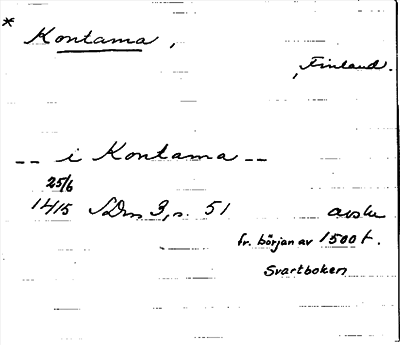 * Kontama,
, Finland.
-- i Kontama --
25/6
1415 SDm 3, s. 51 avskr
fr. början av 1500 t.
Svartboken